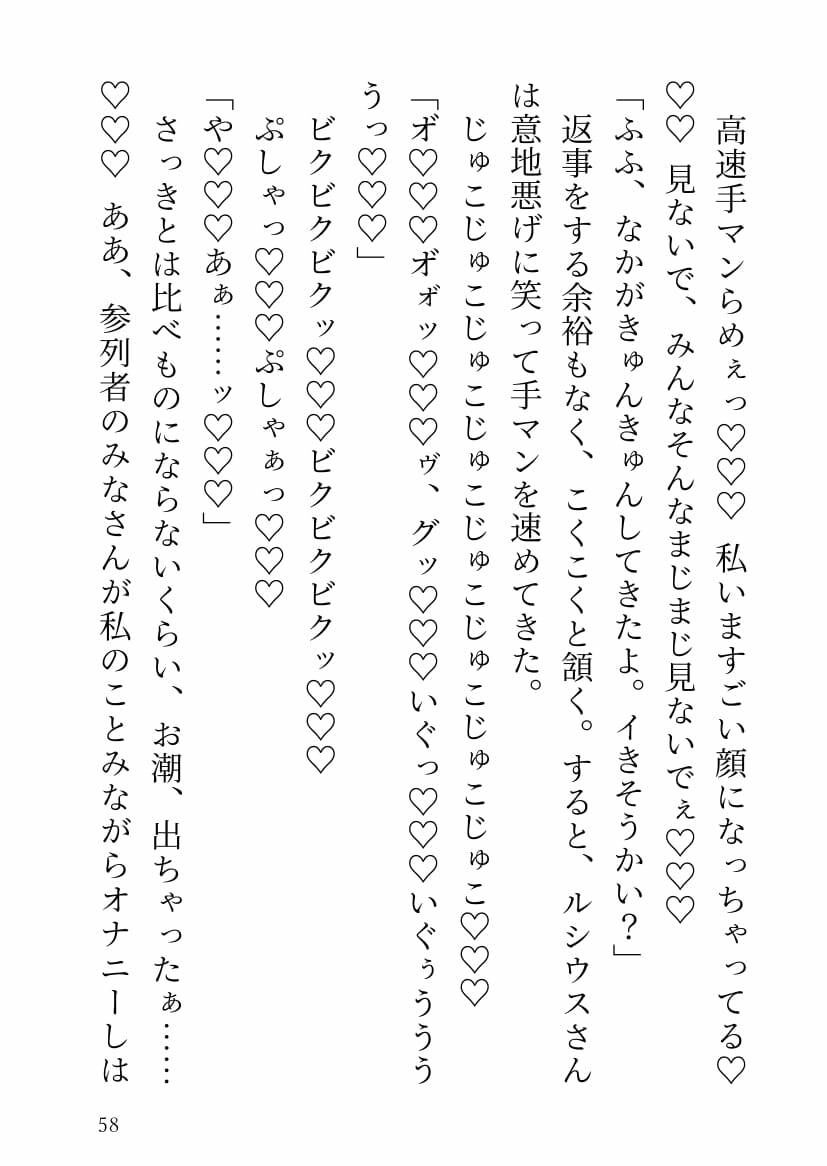 高速手マンらめぇっ♡♡♡　私いますごい顔になっちゃってる♡
♡♡　見ないで、みんなそんなまじまじ見ないでぇ♡♡♡
「ふふ、なかがきゅんきゅんしてきたよ。イきそうかい？」
　返事をする余裕もなく、こくこくと頷く。すると、ルシウスさん
は意地悪げに笑って手マンを速めてきた。
　じゅこじゅこじゅこじゅこじゅこじゅこじゅこじゅこ♡♡♡
「オ゛♡♡♡オ゛ォ゛ッ♡♡♡ヴ、グッ♡♡♡いぐっ♡♡♡いぐぅううう
うっ♡♡♡」
　ビクビクビクッ♡♡♡ビクビクビクッ♡♡♡
　ぷしゃっ♡♡♡ぷしゃぁっ♡♡♡
「や♡♡♡あぁ……ッ♡♡♡」
　さっきとは比べものにならないくらい、お潮、出ちゃったぁ……
♡♡♡　ああ、参列者のみなさんが私のことみながらオナニーしは
58